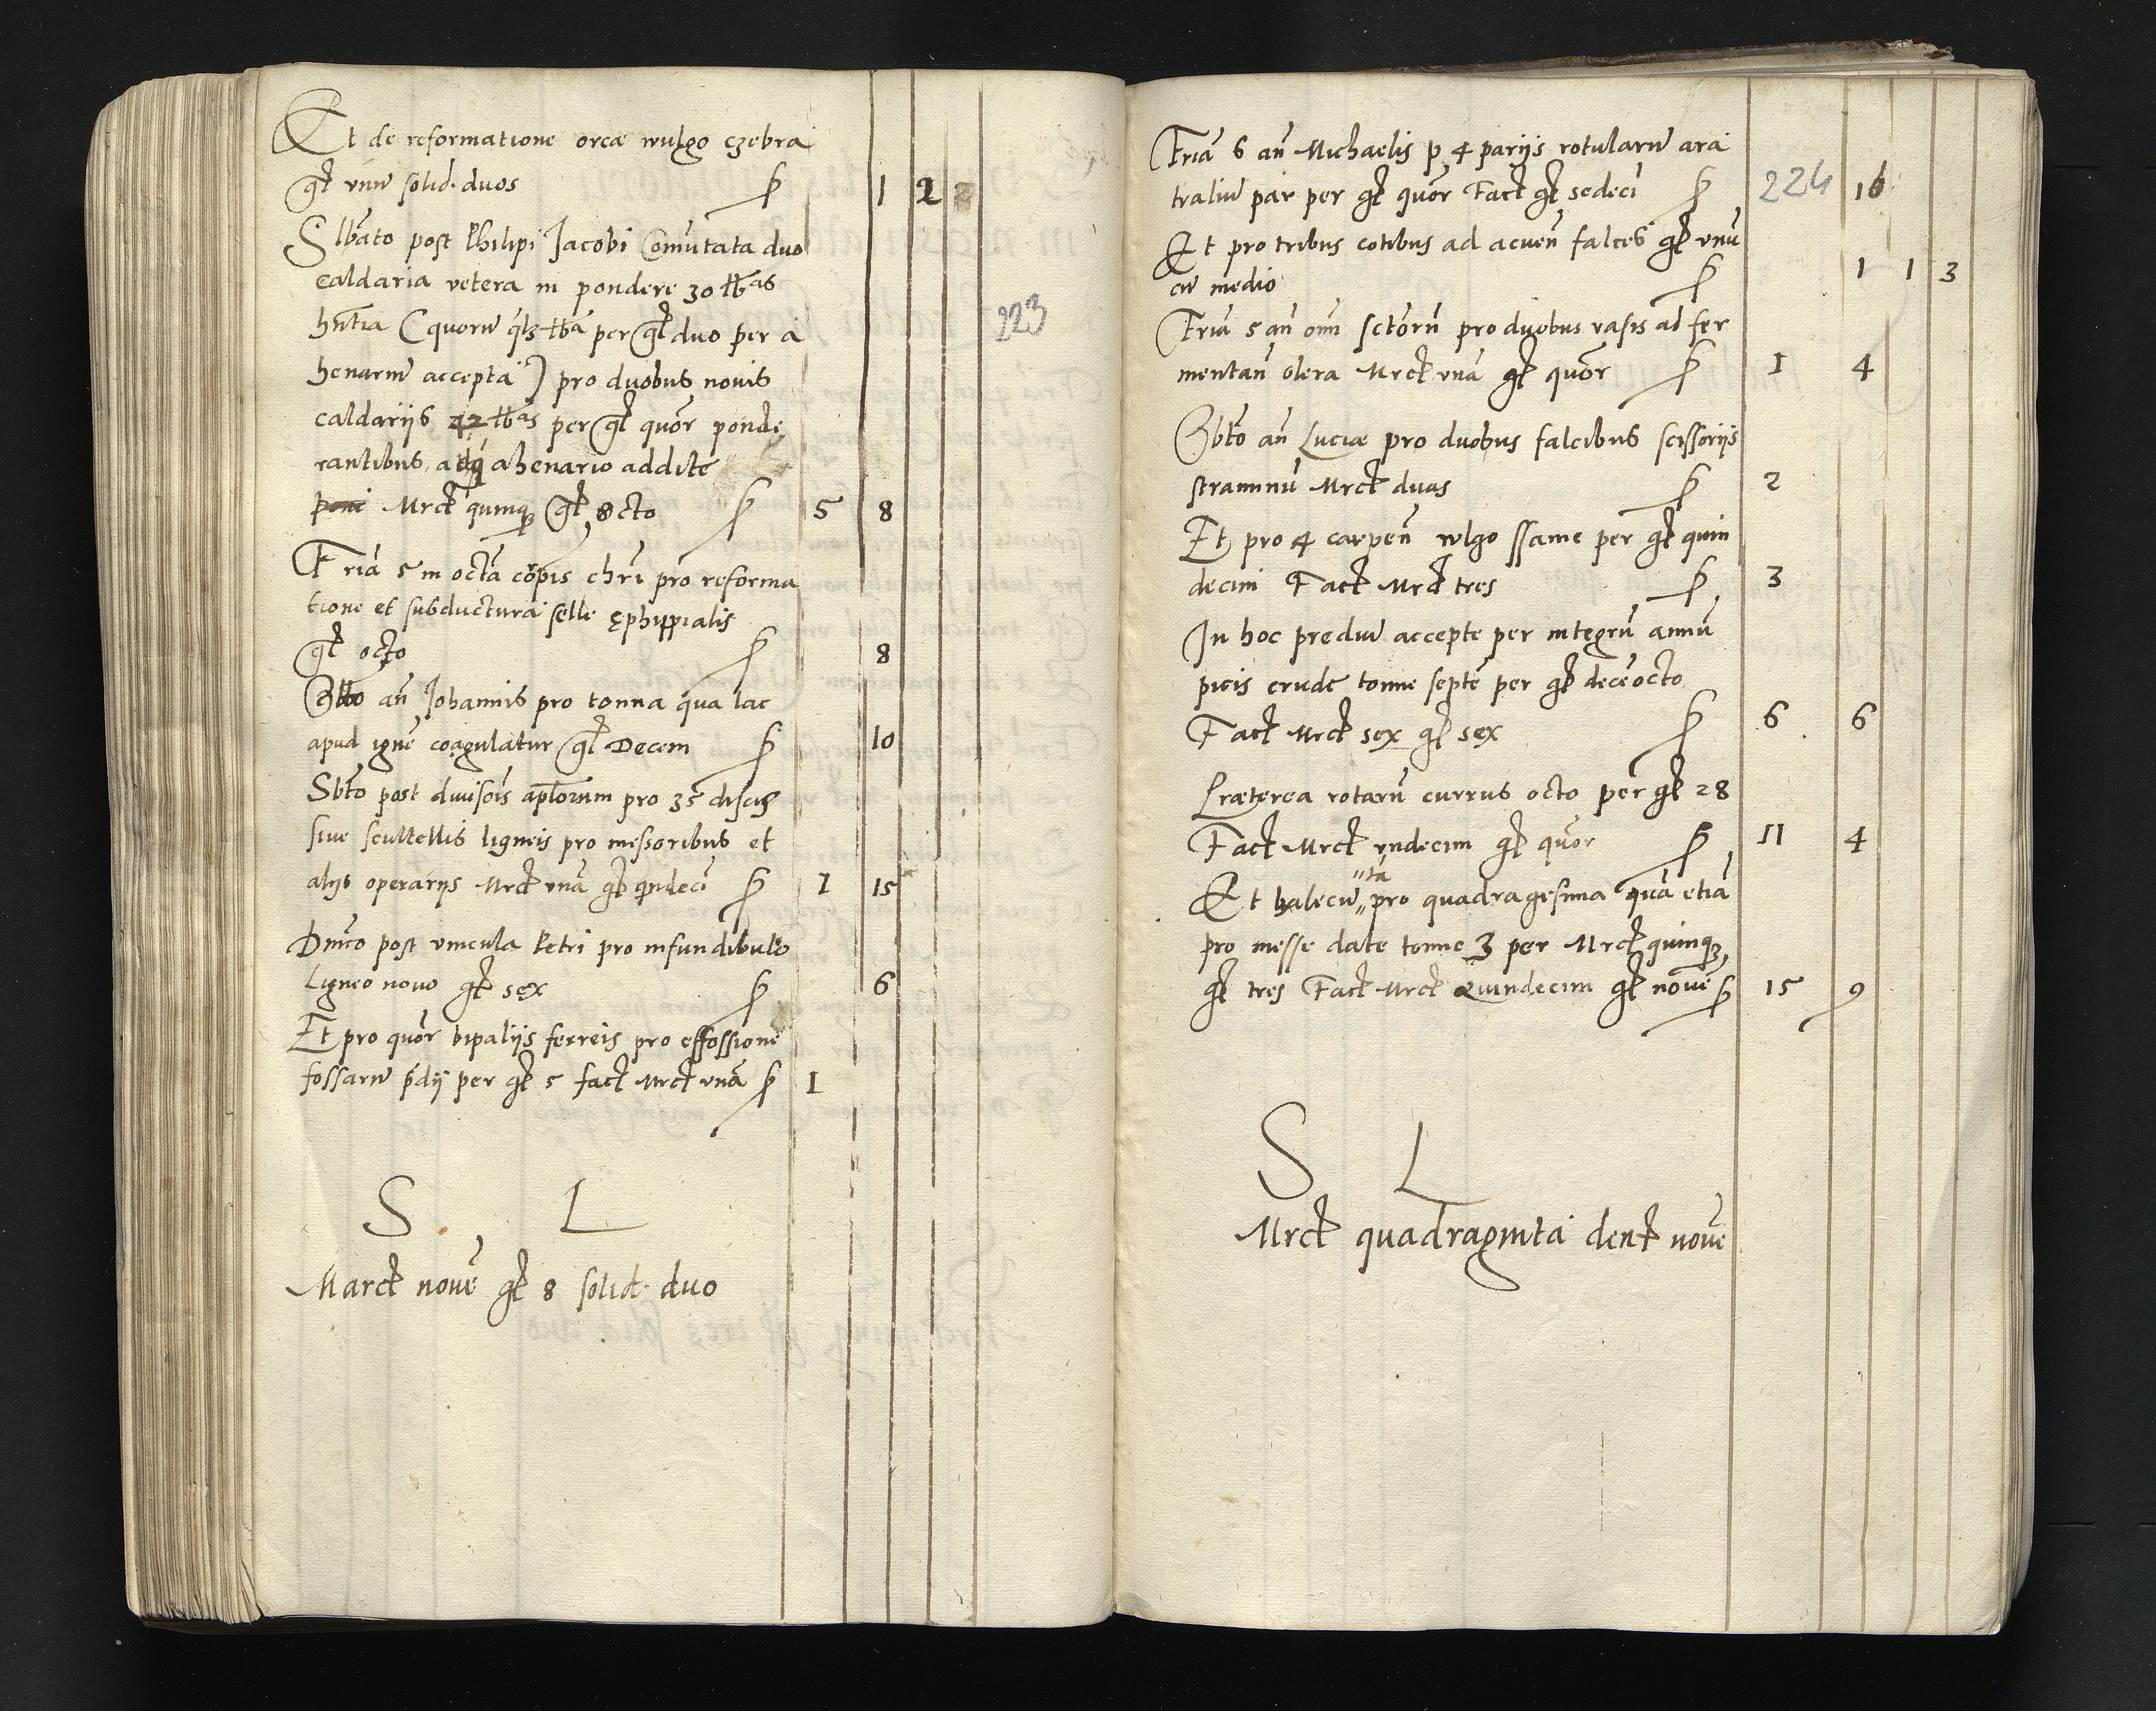 Et de reformatione orcæ wulgo czebra
gſ vnū solid. duos 1 2
Sbbato post Philipi Jacobi Comutata duo
caldaria vetera in pondere 30 lbas
hñtia (quorū qlz lba per gſ duo per a
henariū accepta) pro duobus nouis
caldarijs 42 lbas per gſ quor ponde
rantibus, atq ahenario addite
Mrcſ quinqz gſ octo 5 8
Feria 5 in octa corpis chri pro reforma
tione et subductura selle ephippialis
gſ octo 8
Sbbto an Johannis pro tonna qua lac
apud ignē coagulatur gſ Decem 10
Sbto post diuisois aplorum pro 35 discis
siue scultellis ligneis pro messoribus et
alijs operarijs Mrcſ vnā gſ qindeci 1 15
Dnico post vincula Petri pro infundibulo
Ligneo nouo gſ sex 6
Et pro quor bipalijs ferreis pro effossione
fossarū pdij per gſ 5 fact Mrcſ vnā 1
S L
Marcſ nouē gſ 8 solid. duo
223
Feria 6 an Michaelis p 4 parijs rotularū ara
traliū par per gſ quor Fact gſ sedeci 16
224
Et pro tribus cotibus ad acuen falces gſ vnū
cū medio 1 1 3
Feria 5 an oim sctorū pro duobus vasis ad fer
mentan olera Mrcſ vnā gſ quor 1 4
Sbto an Luciæ pro duobus falcibus scissorijs
straminū Mrcſ duas 2
Et pro 4 carpen wlgo ssanie per gſ quin
decim Fact Mrcſ tres 3
In hoc prediū accepte per integrū annū
picis crude tonne septē per gſ decēocto
Fact Mrcſ sex gſ sex 6 6
Præterea rotarū currus octo per gſ 28
Fact Mrcſ vndecim gſ quor 11 4
Et halecū "ta" pro quadragesima quā etiā
pro messe date tonne 3 per Mrcſ quinqz
gſ tres Fact Mrcſ Quindecim gſ nouē 15 9
S L
Mrcſ quadraginta denſ nouē